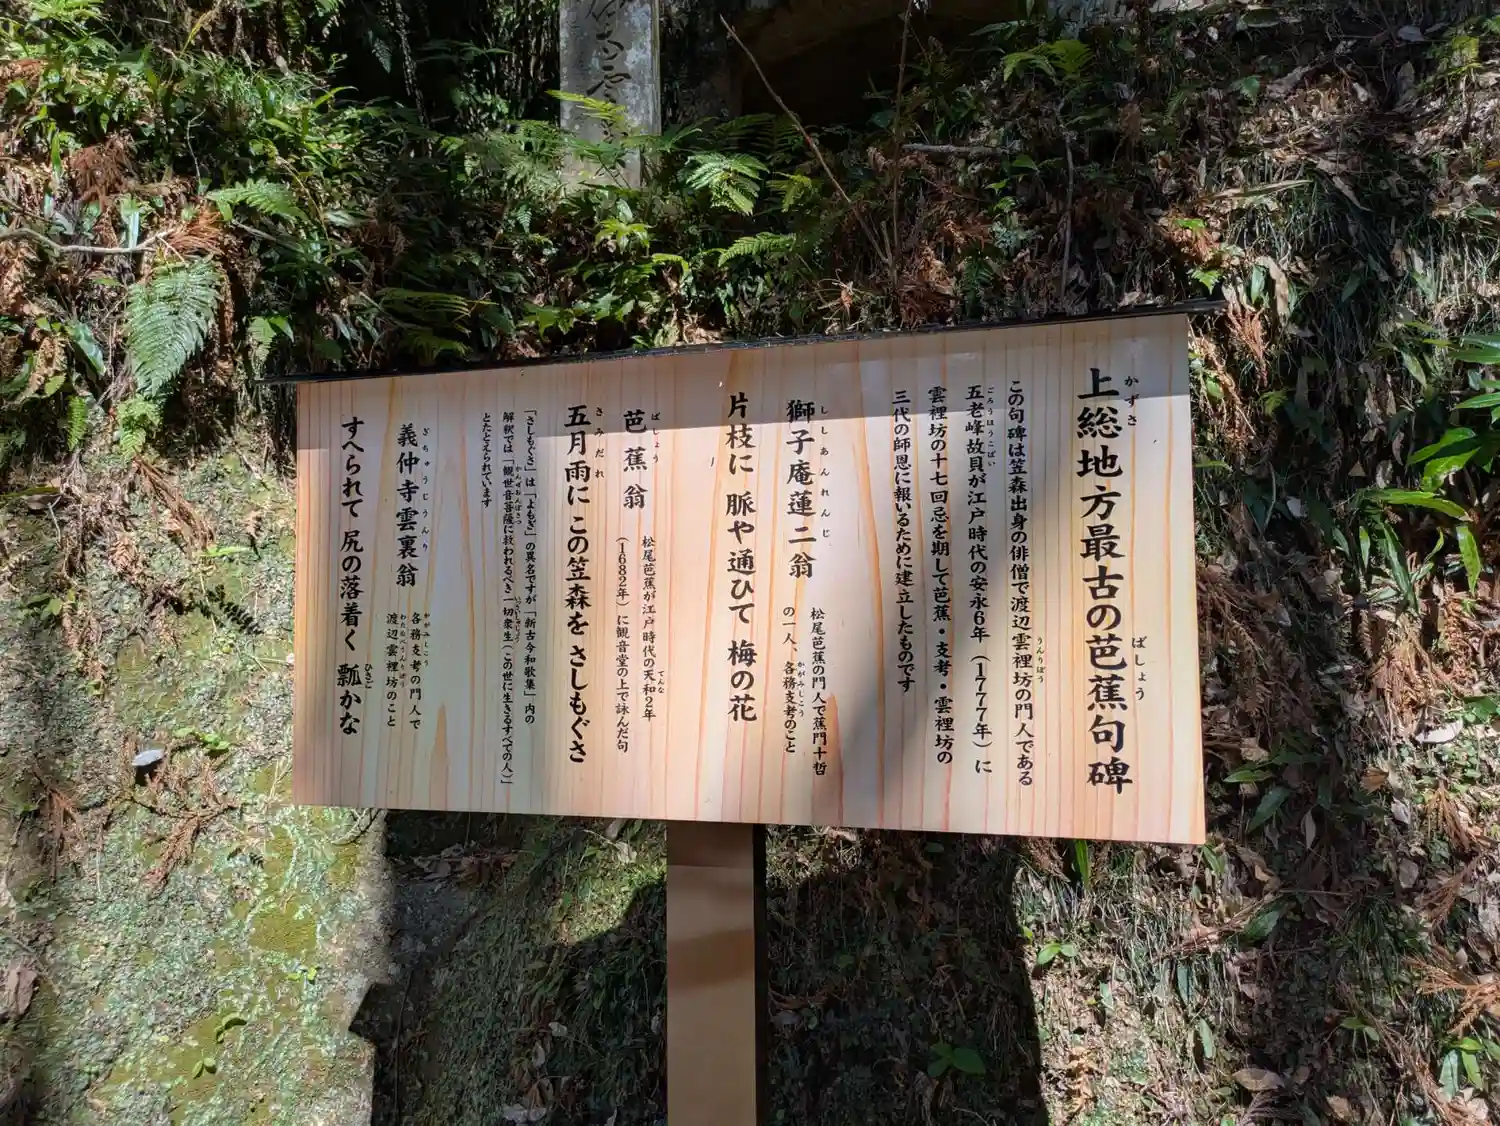 上総地方最古の芭蕉句碑
この句碑は笠森出身の俳僧で渡辺雲裡坊の門人である
五老峰故貝が江戸時代の安永6年（1777年）に
雲裡坊の十七回忌を期して芭蕉・支考・雲裡坊の
三代の師恩に報いるために建立したものです
獅子庵蓮二翁
松尾芭蕉の門人で蕉門十哲
の一人、各務支考のこと
片枝に 脈や通ひて 梅の花
芭蕉翁
松尾芭蕉が江戸時代の天和2年
（1682年）に観音堂の上で詠んだ句
五月雨に この笠森を さしもぐさ
「さしもぐさ」は「よもぎ」の異名ですが「新古今和歌集」内の
解釈では「観世音菩薩に救われるべき一切衆生（この世に生きるすべての人）」
とたとえられています
義仲寺雲裏翁
各務支考の門人で
渡辺雲裡坊のこと
すへられて 尻の落着く 瓢かな